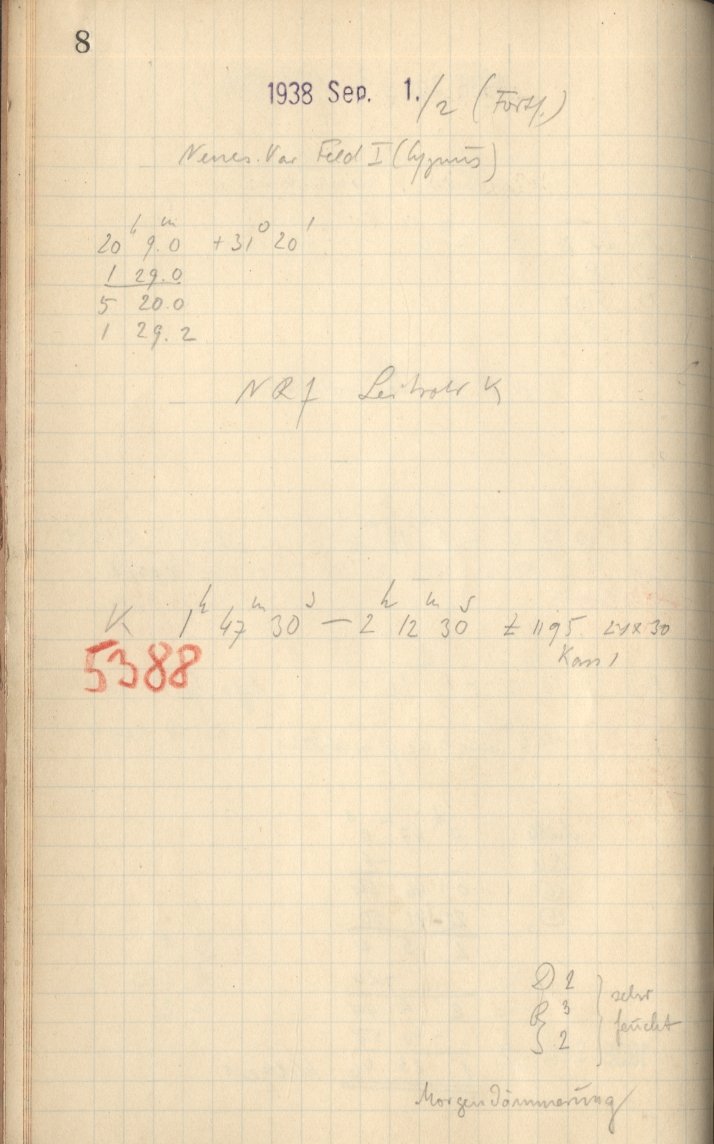 8
1938 Sep. 1./2 (Forts.)
Neues Var Feld I (Cygnus)
20h 9m.0 +31° 20'
1 29.0
5 20.0
1 29.2
K 1h 47m 30s — 2h 12m 30s 1195 30
Kass 1
5388
D 2
3 sehr
2 feucht
Morgendämmerung